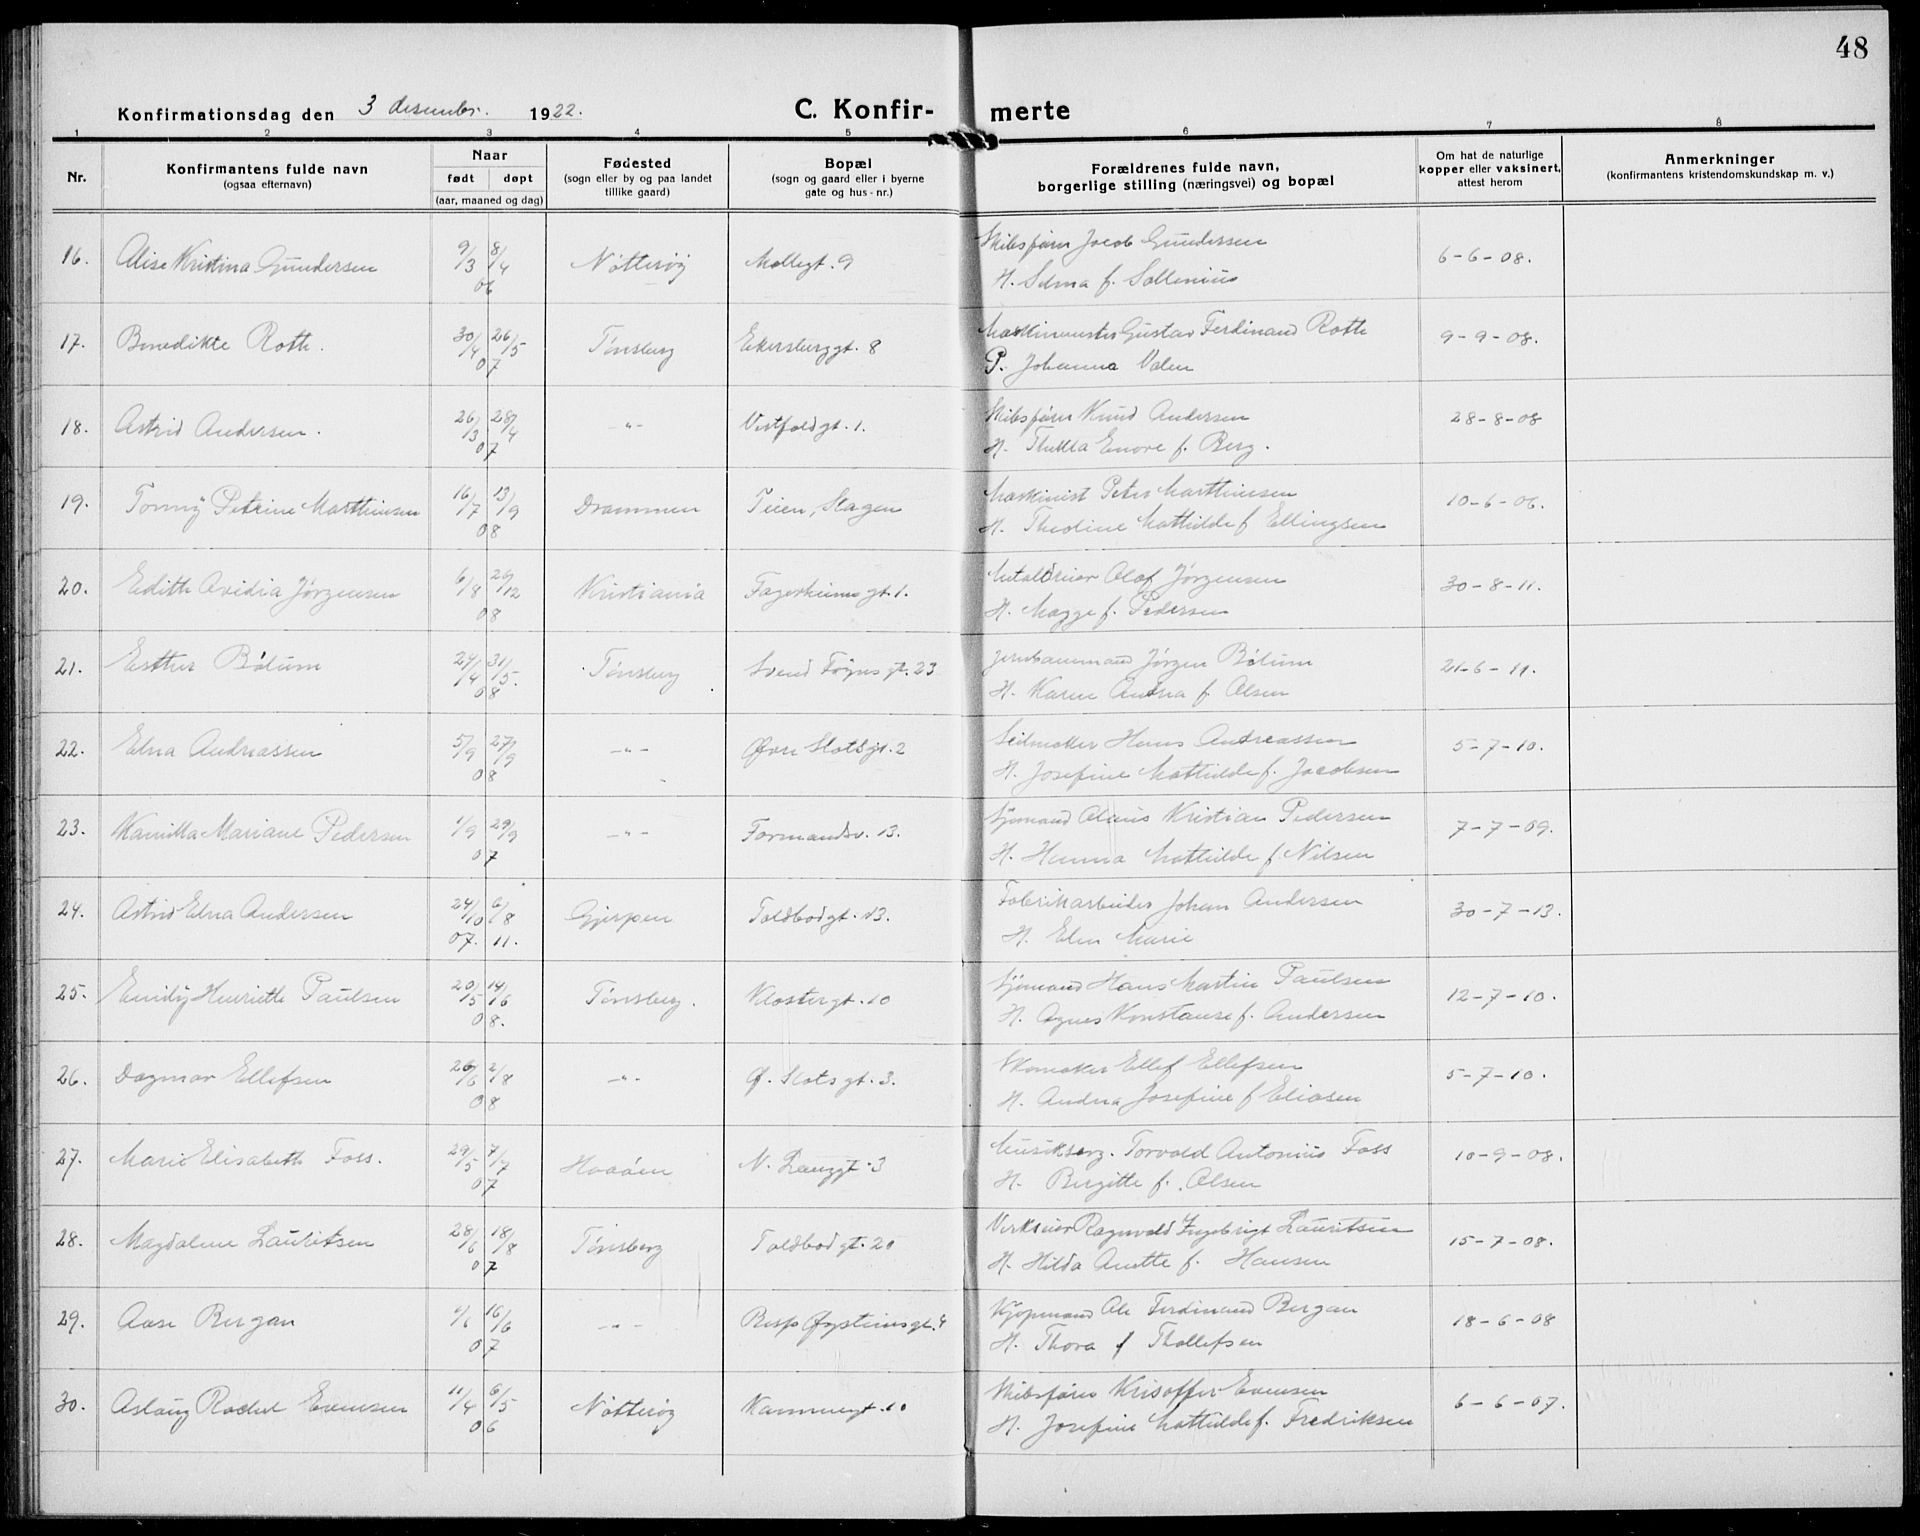 48
Konfirmationsdag den 3 desember. 1922. C. Konfir- merte
1 2 3 4 5 6 7 8
Nr. Konfirmantens fulde navn (ogsaa efternavn) Naar født døpt (aar, maaned og dag) Fødested (sogn eller by og paa landet tillike gaard) Bopæl (sogn og gaard eller i byerne gate og hus-nr.) Forældrenes fulde navn, borgerlige stilling (næringsvei) og bopæl Om hat de naturlige kopper eller vaksinert, attest herom Anmerkninger (konfirmantens kristendomskundskap m. v.)
16. Alise Kristina Gundersen 9/3 8/4 06 Nøtterøy Møllegt. 9 Skibsfører Jacob Gundersen 6-6-08.
H. Selma f. Sallenius
17. Benedikte Roth. 30/4 26/5 07 Tønsberg Ekersberggt. 8 Maskinmester Gustav Ferdinand Roth 9-9-08.
P. Johanna Valen
18. Astrid Andersen. 26/3 28/4 07 -"- Vestfoldgt. 1. Skibsfører Knud Andersen 28-8-08
H. Thekla Enore f. Berg.
19. Tonny Petrine Marthinsen 16/7 13/9 08 Drammen Teien, Slagen Maskinist Peter Marthinsen 10-6-06.
H. Theoline Mathilde f Ellingsen
20. Edith Avidia Jørgensen 6/8 26/12 08 Kristiania Fagerheimsgt. 1. Metaldreier Olaf Jørgensen 30-8-11.
H. Magge f. Pedersen
21. Esther Bølum 27/4 31/5. 08 Tønsberg Svend Føynsgt. 23 Jørgen Bølum 21-6-11.
H. Karen Andrea f. Olsen
22. Elna Andreassen 5/9 27/9 08 -"- Øvre Slotsgt. 2 Seilmaker Hans Andreassen 5-7-10.
H. Josefine Mathilde f. Jacobsen
23. Kamilla Mariane Pedersen 1/9 29/9 07 -"- Formandsv. 13. Sjømand Olaus Kristian Pedersen 7-7-09.
H. Hanna Mathilde f. Nilsen
24. Astrid Elna Andersen 24/10 07. 6/8 11. Gjerpen Toldbodgt. 13. Fabrikarbeider Johan Andersen 30-7-13.
H. Elen Marie
25. Emily Henriette Paulsen 20/5 14/6 08. Tønsberg. Klostergt. 10 Sjømand Hans Martin Paulsen 12-7-10.
H. Agnes Konstanse f. Andersen
26. Dagmar Ellefsen 26/6 2/8 08 -"- Ø. Slotsgt. 3. Skomaker Ellef Ellefsen 5-7-10.
H. Andrea Josefine f Eliasen
27. Marie Elisabeth Foss. 29/5 7/7 07 Haaøen N. Langgt. 3 Musikserg. Torvald Antonius Foss 10-9-08.
H. Birgitte f. Olsen
28. Magdalene Lauritsen 28/6 18/8 07 Tønsberg Toldbodgt. 20 Verkseier Ragnvald Ingebrigt Lauritsen 15-7-08.
H. Hilda Anette f. Hansen
29. Aase Bergan 1/6 16/6 07 -"- Bisp Øysteinsgt. 4 Kjøpmand Ole Ferdinand Bergan 18-6-08
H. Thora f Thollefsen
30. Aslaug Rachel Evensen 11/4 6/5 06 Nøtterøy Kammegt. 10 Skibsfører Krisoffer Evensen 6-6-07.
H. Josefine Mathilde f. Fredriksen